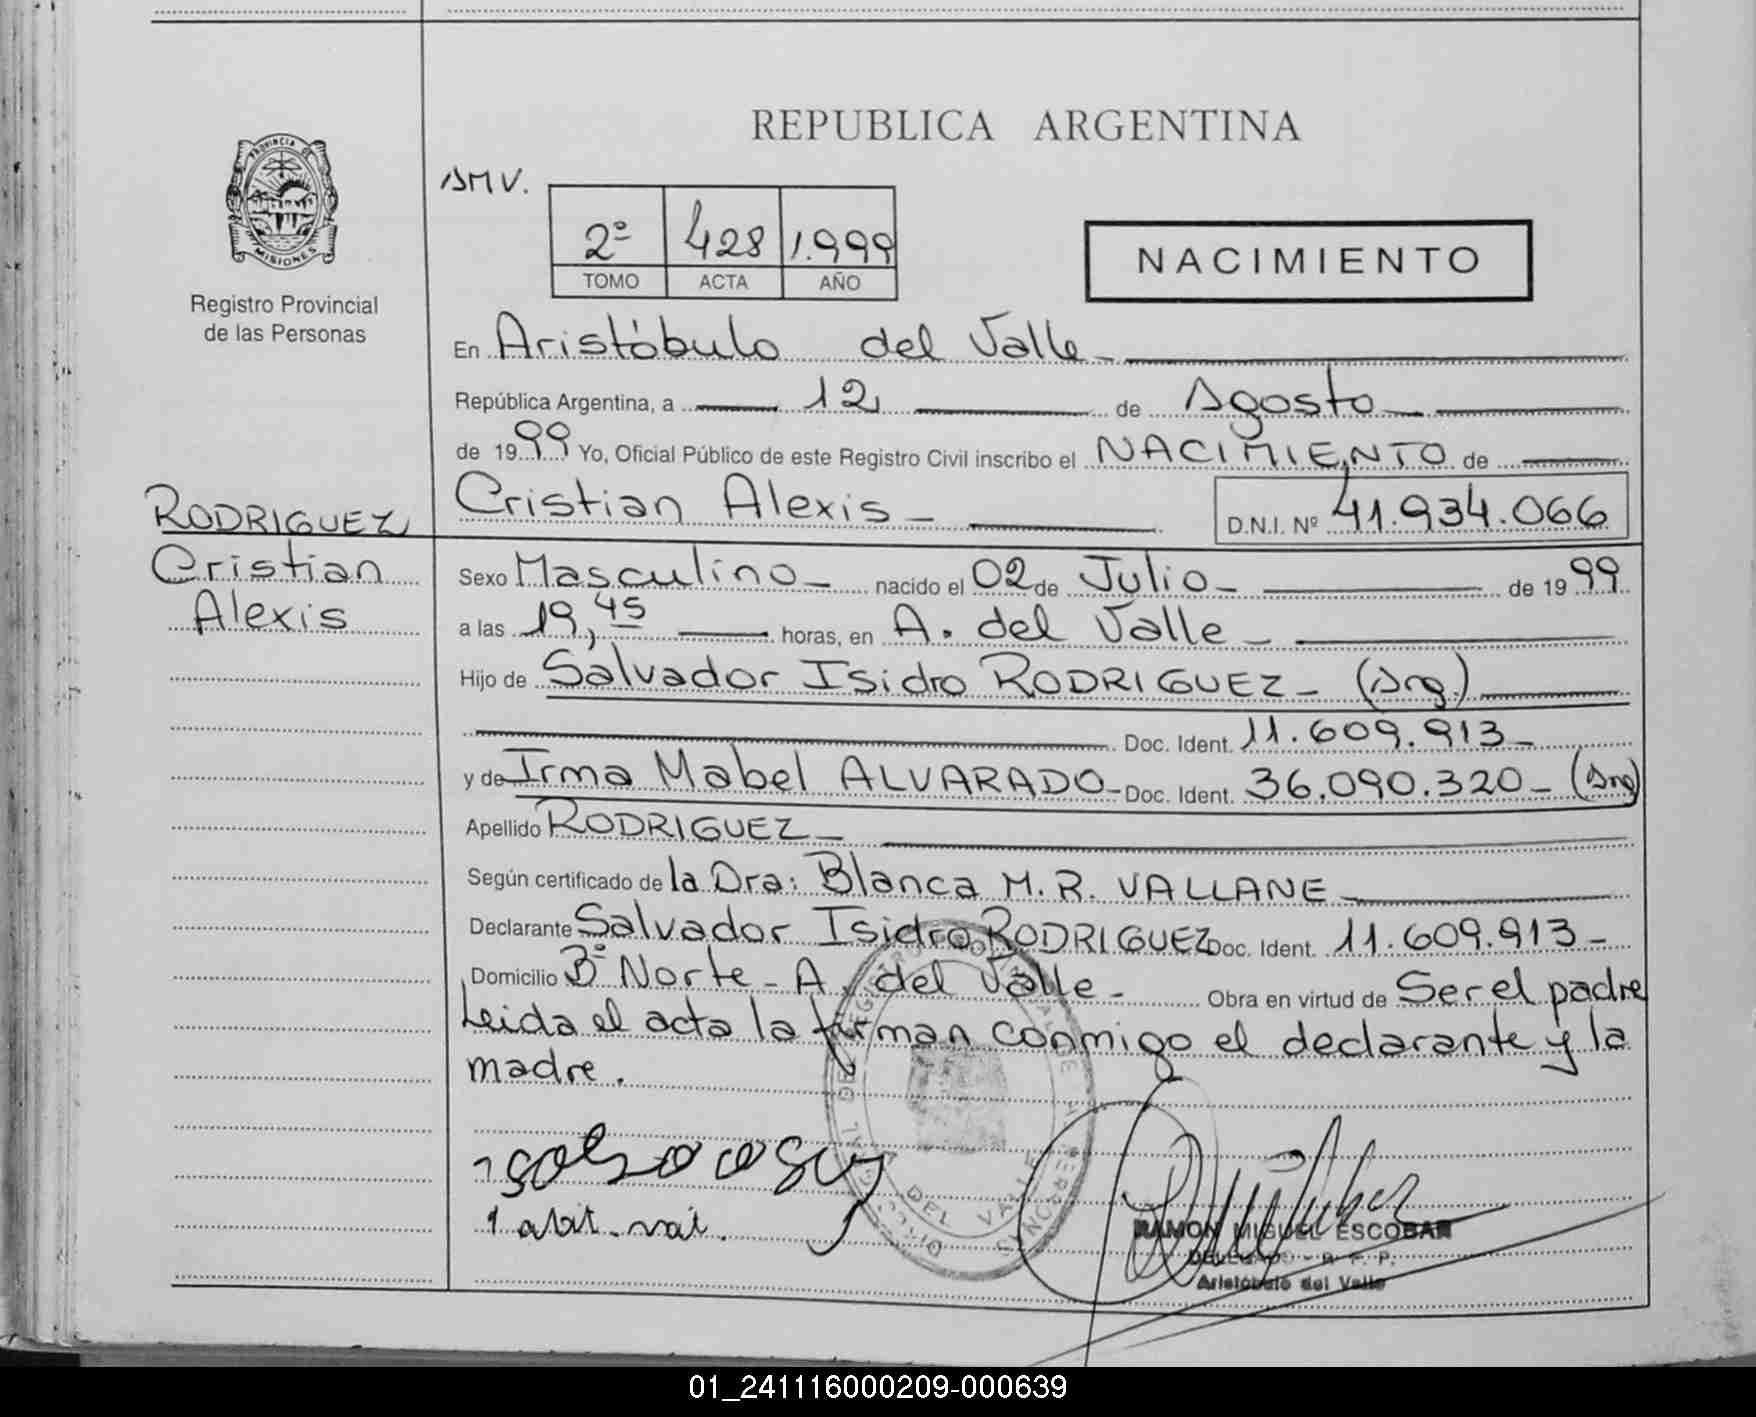 REPUBLICA ARGENTINA
PROVINCIA DE
MISIONES
Registro Provincial
de las Personas
AMV.
2º 428 1.999
TOMO ACTA AÑO
NACIMIENTO
En Aristóbulo del Valle
República Argentina, a 12 de Agosto
de 1999 Yo, Oficial Público de este Registro Civil inscribo el NACIMIENTO de
RODRIGUEZ
Cristian
Alexis
Cristian Alexis D.N.I. Nº 41.934.066
Sexo Masculino nacido el 02 de Julio de 1999
a las 19,45 horas, en A. del Valle
Hijo de Salvador Isidro RODRIGUEZ (Arg.)
Doc. Ident. 11.609.913
y de Irma Mabel ALVARADO Doc. Ident. 36.090.320 (Arg)
Apellido RODRIGUEZ
Según certificado de la Dra: Blanca M. R. VALLANE
Declarante Salvador Isidro RODRIGUEZ Doc. Ident. 11.609.913
Domicilio Bº Norte - A. del Valle Obra en virtud de Ser el padre
Leida el acta la firman conmigo el declarante y la
madre.
DEL VALLE
RAMON MIGUEL ESCOBAR
DELEGADO - R. P. P.
Aristóbulo del Valle
01_241116000209-000639